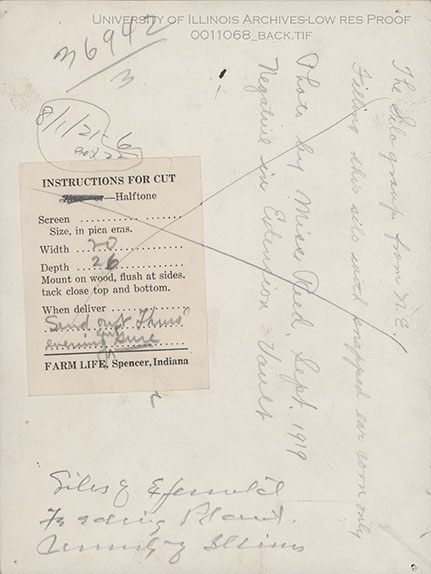 UNIVERSITY OF ILLINOIS ARCHIVES-LOW RES PROOF
0011068_BACK.TIF
36942
3
8/1/21-6
INSTRUCTIONS FOR CUT
—Halftone
Screen
Size, in pica ems.
Width 20
Depth 26
Mount on wood, flush at sides,
tack close top and bottom.
When deliver
Send out Thurs
evening sure
FARM LIFE, Spencer, Indiana
The Silo group from N.E.
Filling this silo with snapped ear corn only
Photo by Miss Reed, Sept. 1919
Negative in Extension Vault
Silos of
Feeding Plant.
Illinois